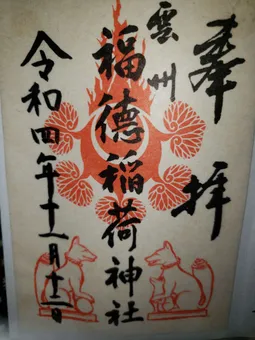 奉拝
雲州
福徳稲荷神社
令和四年十二月十二日